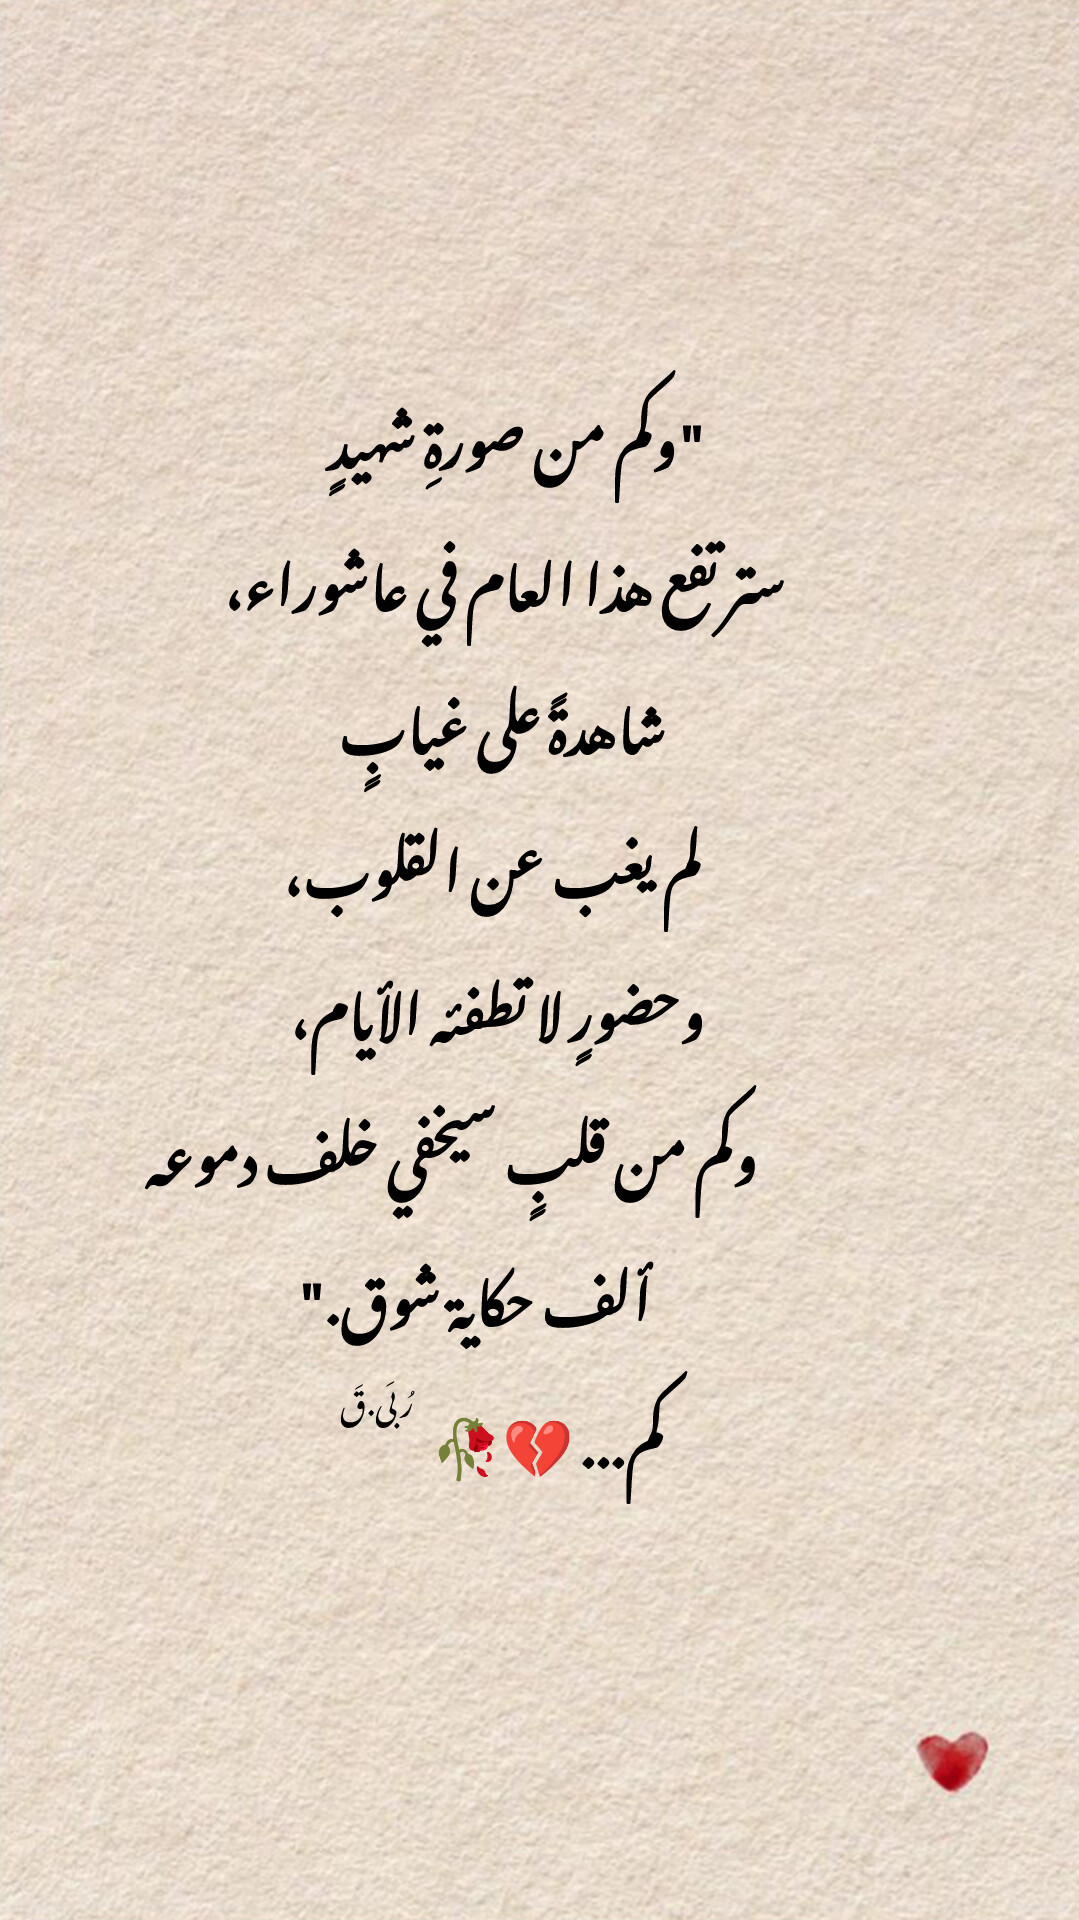 "وكم من صورةِ شهيدٍ
سترتفع هذا العام في عاشوراء،
شاهدةً على غيابٍ
لم يغب عن القلوب،
وحضورٍ لا تطفئه الأيام،
وكم من قلبٍ سيخفي خلف دموعه
ألف حكاية شوق."
كم... 💔🥀 رُبَى.قَ